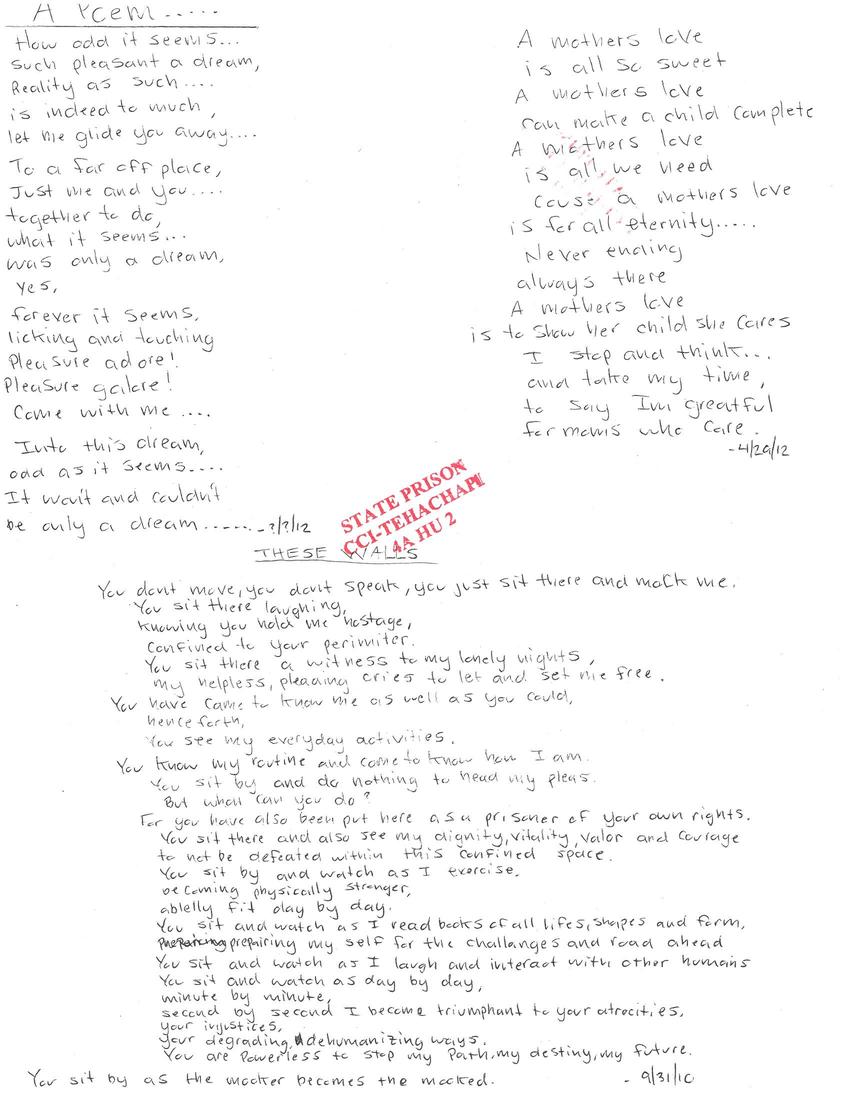 A Poem.....
How odd it seems...
such pleasant a dream,
Reality as such....
is indeed to much,
let me glide you away....
To a far off place,
Just me and you....
together to do,
what it seems...
was only a dream,
yes,
forever it seems,
licking and touching
Pleasure adore!
Pleasure galore!
Come with me ....
Into this dream,
odd as it seems....
It won't and couldn't
be only a dream...... -?/?/12
A mothers love
is all so sweet
A mothers love
can make a child complete
A mothers love
is all we need
Cause a mothers love
is for all eternity.....
Never ending
always there
A mothers love
is to show her child she cares
I stop and think...
and take my time,
to say Im greatful
for moms who care.
-4/20/12
STATE PRISON
CCI-TEHACHAPI
4A HU 2
THESE WALLS
You dont move, you dont speak, you just sit there and mock me.
You sit there laughing,
knowing you hold me hostage,
confined to your perimiter.
You sit there a witness to my lonely nights,
my helpless, pleading cries to let and set me free.
You have came to know me as well as you could,
hence forth,
You see my everyday activities.
You know my routine and come to know how I am.
You sit by and do nothing to head my pleas.
But what can you do?
For you have also been put here as a prisoner of your own rights.
You sit there and also see my dignity, vitality, valor and courage
to not be defeated within this confined space.
You sit by and watch as I exercise,
becoming physically stronger,
ablelly fit day by day.
You sit and watch as I read books of all lifes, shapes and form,
prepairing my self for the challanges and road ahead
You sit and watch as I laugh and interact with other humans
You sit and watch as day by day,
minute by minute,
second by second I become triumphant to your atrocities,
your injustices,
your degrading, dehumanizing ways.
You are Powerless to stop my Path, my destiny, my future.
You sit by as the mocker becomes the mocked. - 9/31/10